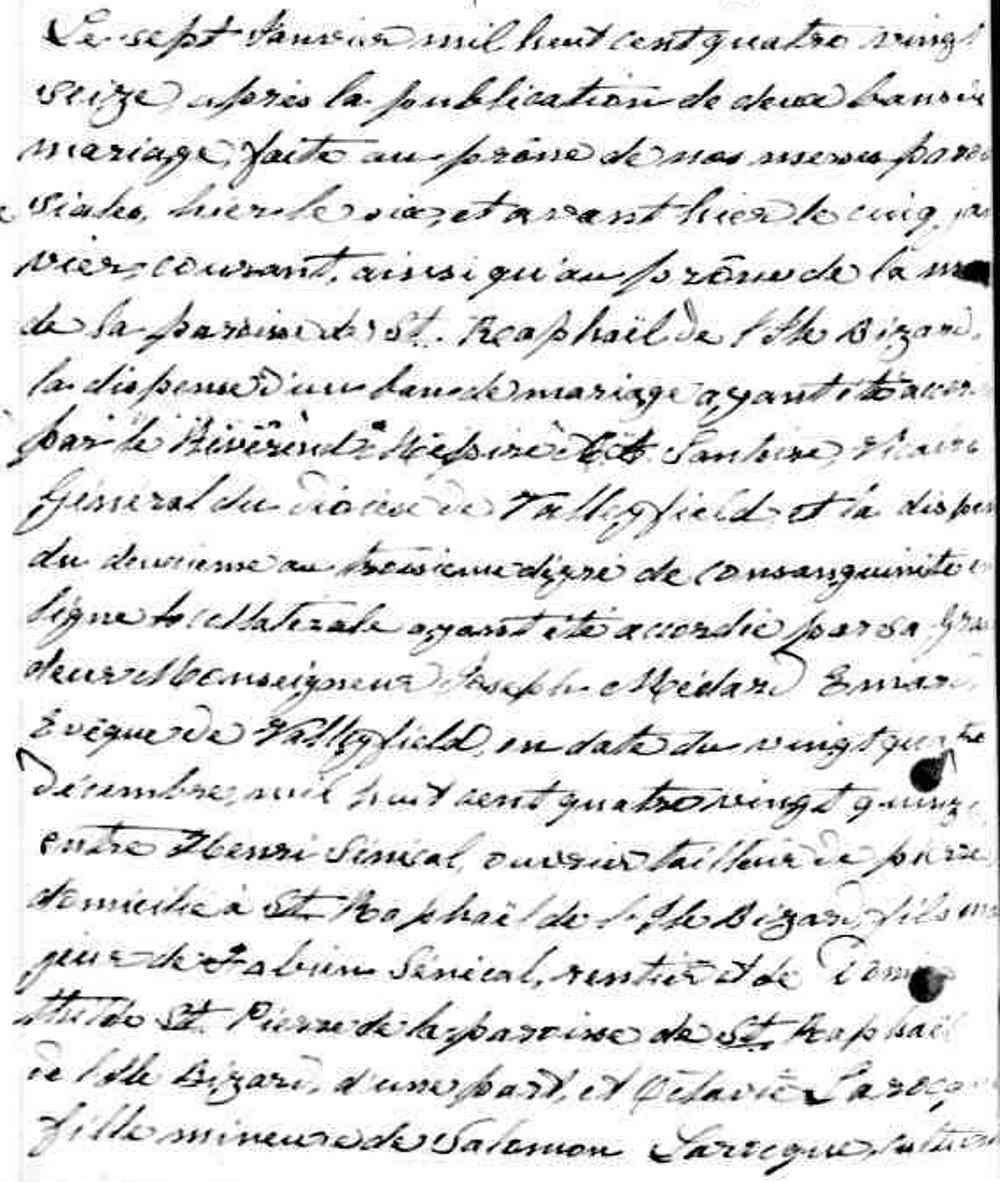 Le sept Janvier mil huit cent quatre vingt
seize, après la publication de deux bans de
mariage, faite au prône de nos messes parois
siales, hier le six, et avant hier le cinq jan
vier courant, ainsi qu'au prône de la
de la paroisse de St. Raphaël de l'Ile Bizard,
la dispense d'un ban de mariage ayant été accor
par le Révérend Messire Santoire, Vicaire
Général du diocèse de Valleyfield et la dispen
du deuxième au troisième degré de consanguinité en
ligne collatérale ayant été accordée par sa Gran
deur Monseigneur Joseph Médard Emard,
Evêque de Valleyfield, en date du vingt quatre
décembre, mil huit cent quatre vingt quinze,
entre Henri Sénécal, ouvrier tailleur de pierre
domicilié à St. Raphaël de l'Ile Bizard, fils ma
jeur de Fabien Sénécal, rentier et de Domi
thilde St. Pierre de la paroisse de St. Raphaël
de l'Ile Bizard, d'une part, et Octavie Larocq
fille mineure de Salomon Larocque, cultiv